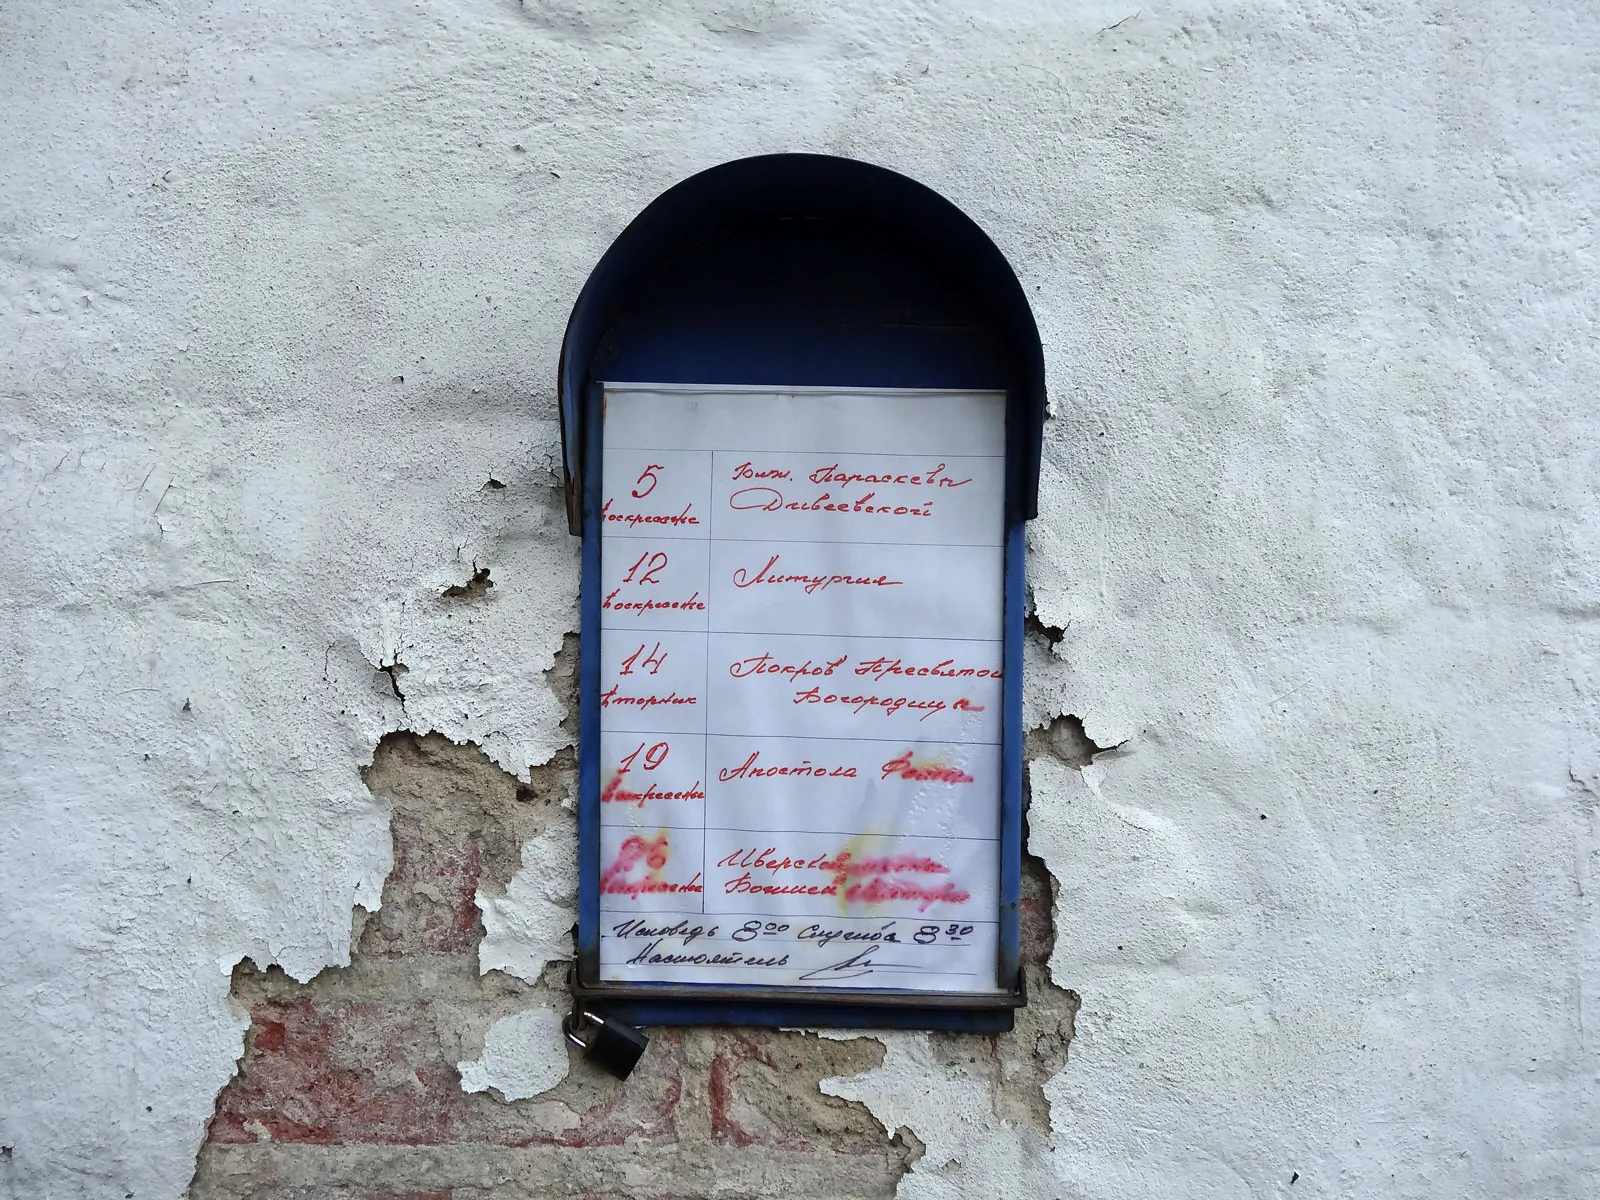 5
Воскресенье
Блж. Параскевы
Дивеевской
12
Воскресенье
Литургия
14
Вторник
Покров Пресвятой
Богородицы
19
Воскресенье
Апостола Фомы
26
Воскресенье
Иверской иконы
Божией Матери
Исповедь 8⁰⁰ Служба 8³⁰
Настоятель